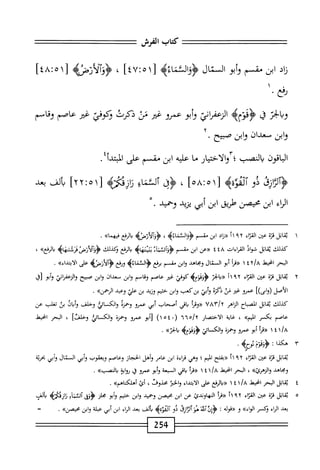 كتاب الفرش
زاد ابن مقسم وأبو السمّال ﴿وَالسَّمَاءُ﴾ [٤٧:٥١] ، ﴿وَالْأَرْضُ﴾ [٤٨:٥١]
رفع .١
وبالجرّ في ﴿قَوْمِ﴾ الزعفرانيّ وأبو عمرو غير مَنْ ذكرتُ وكوفيّ غير عاصم وقاسم
وابن سعدان وابن صبيح .٢
الباقون بالنصب ؛٣ والاختيار ما عليه ابن مقسم على المبتدأ٤.
﴿الرَّزَّاقُ ذُو الْقُوَّةِ﴾ [٥٨:٥١] ، ﴿فِي السَّمَاءِ رَازِقُكُمْ﴾ [٢٢:٥١] بألف بعد
الراء ابن محيصن طريق ابن أبي يزيد وحميد .٥
١ يُقابل قرّة عين القرّاء ١٩٢أ «زاد ابن مقسم ﴿وَالسَّمَاءُ﴾ ، ﴿وَالْأَرْضُ﴾ بالرفع فيهما» .
كذلك يُقابل شواذّ القراءات ٤٤٨ «عن ابن مقسم ﴿وَالسَّمَاءُ بَنَيْنَاهَا﴾ بالرفع وكذلك ﴿وَالْأَرْضُ فَرَشْنَاهَا﴾ بالرفع» ،
البحر المحيط ١٤٢/٨ «قرأ أبو السمال ومجاهد وابن مقسم برفع ﴿السَّمَاءُ﴾ ورفع ﴿الْأَرْضُ﴾ على الابتداء» .
٢ يُقابل قرّة عين القرّاء ١٩٢أ «بالجرّ ﴿وَقَوْمِ﴾ كوفيّ غير عاصم وقاسم وابن سعدان وابن صبيح والزعفرانيّ وأبو [في
الأصل (وابن)] عمرو غير مَنْ ذكرتُ وأبيّ بن كعب وابن خثيم وزيد بن عليّ وعبد الرحمن» .
كذلك يُقابل المصباح الزاهر ٧٨٣/٢ «وقرأ باقي أصحاب أبي عمرو وحمزةُ والكسائيُّ وخلف وأبانُ بنُ تغلب عن
عاصم بكسر الميم» ، غاية الاختصار ٦٦٥/٢ (١٥٤٠) [أبو عمرو وحمزة والكسائيّ وخلف] ، البحر المحيط
١٤١/٨ «قرأ أبو عمرو وحمزة والكسائيّ ﴿وَقَوْمِ﴾ بالجرّ» .
٣ هكذا : ﴿وَقَوْمَ نُوحٍ﴾ .
يُقابل قرّة عين القرّاء ١٩٢أ «بفتح الميم ؛ وهي قراءة ابن عامر وأهل الحجاز وعاصم ويعقوب وأبي السمال وأبي بحرية
ومجاهد والزهريّ» ، البحر المحيط ١٤١/٨ «قرأ باقي السبعة وأبو عمرو في رواية بالنصب» .
٤ يُقابل البحر المحيط ١٤١/٨ «بالرفع على الابتداء والخبرُ محذوفٌ ، أيْ أهلكناهم» .
٥ يُقابل قرّة عين القرّاء ١٩٢أ «قرأ النهاونديّ عن ابن محيصن وحميد وابن خثيم وأبو مجلز ﴿وَفِي السَّمَاءِ رَازِقُكُمْ﴾ بألفٍ
بعد الراء وكسر الواء» و «قوله : ﴿إِنَّ اللهَ هُوَ الرَّازِقُ ذُو الْقُوَّةِ﴾ بألف بعد الراء ابن أبي عبلة وابن محيصن» . -
254